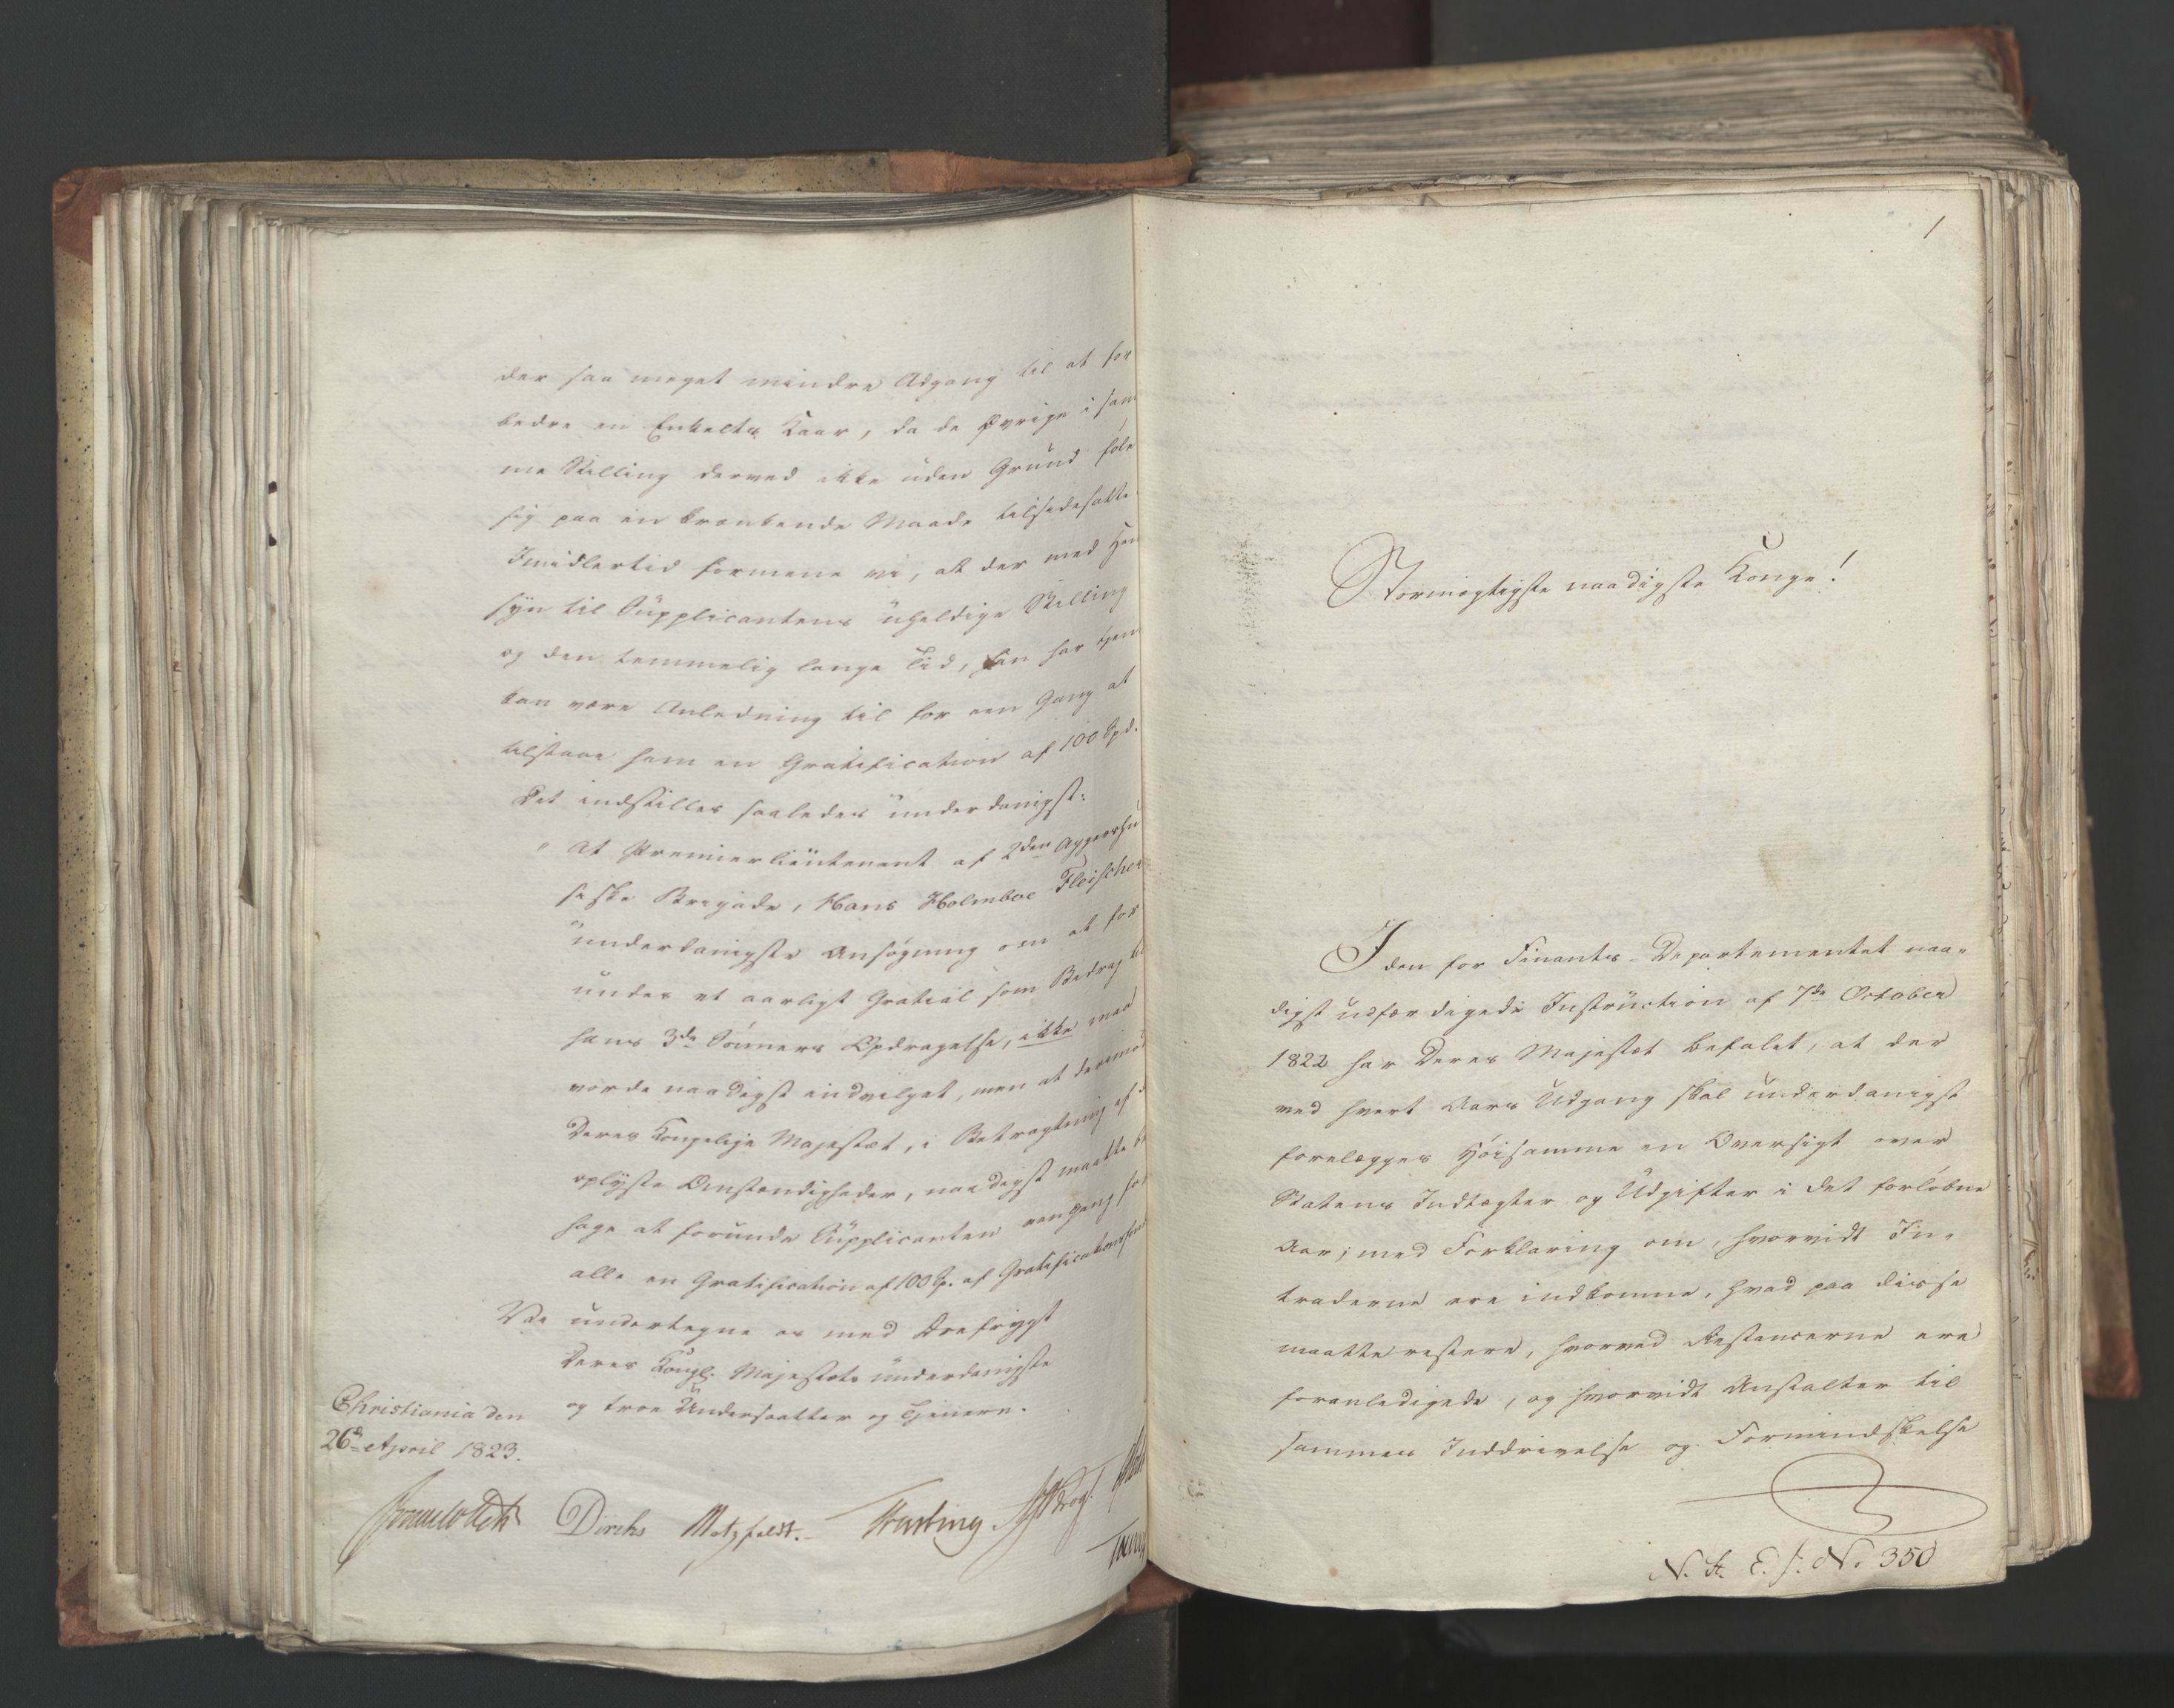 der saa meget mindre Adgang til at for
bedre en Enkelts Kaar, da de Øvrige i sam
me Stilling derved ikke uden Grund føle
sig paa en krænkende Maade tilsidesatte
Imidlertid formene vi, at der med Hen
syn til Supplicantens uheldige Stilling
og den temmelig lange Tid, han har tjen
kan være Anledning til for een Gang at
tilstaae ham en Gratification af 100 Spd.
Det indstilles saaledes underdanigst:
" At Premierlieutenant af 2den Aggershu
siske Brigade, Hans Holmboe Fleischer
underdanigste Ansøgning om at for
undes et aarligt Gratial som Bidrag til
hans 3de Sønners Opdragelse, ikke maa
vorde naadigst indvilget, men at derimod
Deres Kongelige Majestæt, i Betragtning af d
oplyste Omstændigheder, naadigst maatte be
hage at forunde Supplicanten eengang for
alle en Gratification af 100 Sp. af Gratificationsfond
Vi undertegne os med Ærefrygt
Deres Kongl. Majestæts underdanigste
og troe Undersaatter og Tjenere.
Christiania den
26de April 1823.
Sommerhielm Diriks Motzfeldt. Fasting
1
Stormægtigste naadigste Konge!
I den for Finants-Departementet naa-
digst udfærdigede Instruction af 7de October
1822 har Deres Majestæt befalet, at der
ved hvert Aars Udgang skal underdanigst
forelægges Høisamme en Oversigt over
Statens Indtægter og Udgifter i det forløbne
Aar; med Forklaring om, hvorvidt In-
traderne ere indkomne, hvad paa disse
maatte restere, hvorved Restancerne ere
foranledigede, og hvorvidt Anstalter til
sammes Inddrivelse og Formindskelse
N. St. E. J. No. 350